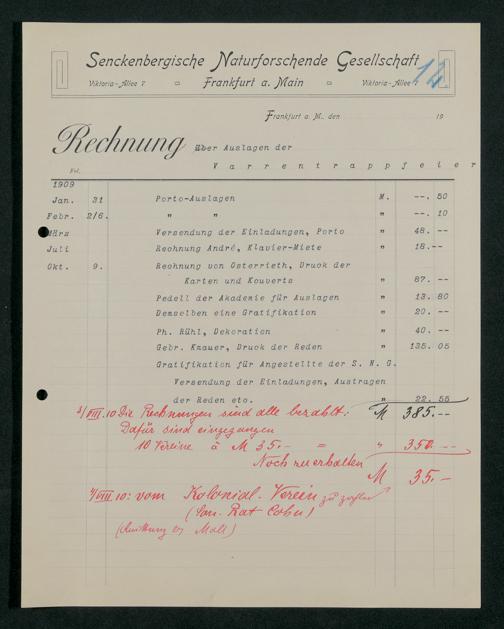 Senckenbergische Naturforschende Gesellschaft
Viktoria-Allee 7 Frankfurt a. Main Viktoria-Allee 7
Frankfurt a. M., den 19
Rechnung über Auslagen der
Varrentrappfeier
Fol.
1909
Jan. 31 Porto-Auslagen M. --. 50
Febr. 2/6. " " " --. 10
März Versendung der Einladungen, Porto " 48. --
Juli Rechnung André, Klavier-Miete " 18.--
Okt. 9. Rechnung von Osterrieth, Druck der
Karten und Kouverts " 87. --
Pedell der Akademie für Auslagen " 13. 80
Demselben eine Gratifikation " 20. --
Ph. Rühl, Dekoration " 40. --
Gebr. Knauer, Druck der Reden " 135. 05
Gratifikation für Angestellte der S. N. G.
Versendung der Einladungen, Austragen
der Reden etc. " 22. 55
/VIII.10 Die Rechnungen sind alle bezahlt: M 385.--
Dafür sind eingegangen
10 Vereine à M 35.- = " 350.--
Noch zu erhalten M 35.-
/VIII 10: vom Kolonial-Verein zu zahlen
(San. Rat Cohn)